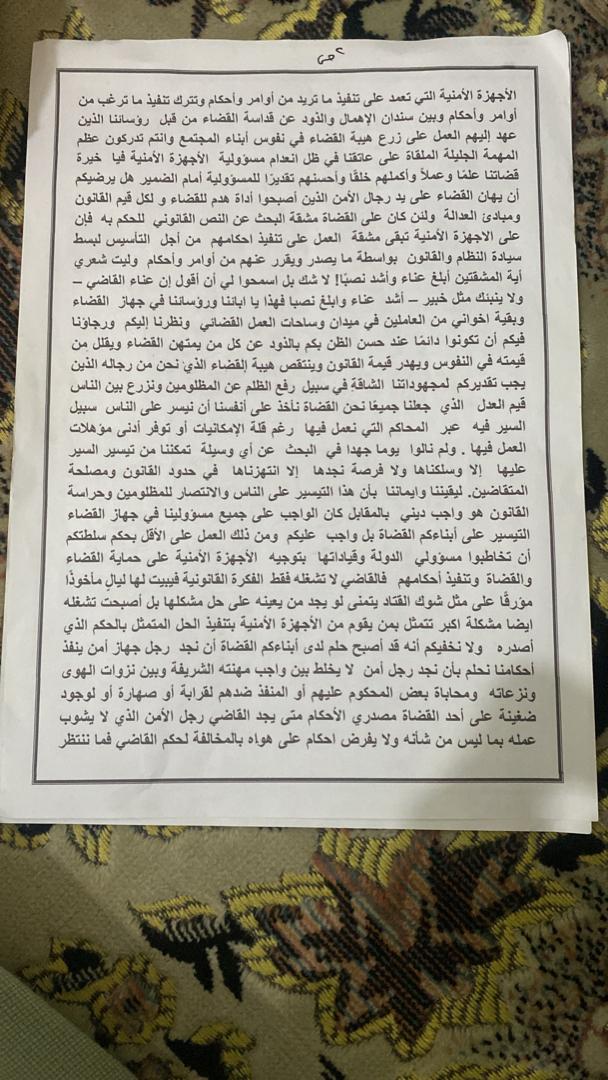 ص٢
الأجهزة الأمنية التي تعمد على تنفيذ ما تريد من أوامر وأحكام وتترك تنفيذ ما ترغب من
أوامر وأحكام وبين سندان الإهمال والذود عن قداسة القضاء من قبل رؤسائنا الذين
عهد إليهم العمل على زرع هيبة القضاء في نفوس أبناء المجتمع وانتم تدركون عظم
المهمة الجليلة الملقاة على عاتقنا في ظل انعدام مسؤولية الأجهزة الأمنية فيا خيرة
قضاتنا علمًا وعملاً وأكملهم خلقًا وأحسنهم تقديرًا للمسؤولية أمام الضمير هل يرضيكم
أن يهان القضاء على يد رجال الأمن الذين أصبحوا أداة هدم للقضاء و لكل قيم القانون
ومبادئ العدالة ولئن كان على القضاة مشقة البحث عن النص القانوني للحكم به فإن
على الاجهزة الأمنية تبقى مشقة العمل على تنفيذ احكامهم من أجل التأسيس لبسط
سيادة النظام والقانون بواسطة ما يصدر ويقرر عنهم من أوامر وأحكام وليت شعري
أية المشقتين أبلغ عناء وأشد نصبًا! لا شك بل اسمحوا لي أن أقول إن عناء القاضي –
ولا ينبئك مثل خبير – أشد عناء وابلغ نصبا فهذا يا ابائنا ورؤسائنا في جهاز القضاء
وبقية اخواني من العاملين في ميدان وساحات العمل القضائي ونظرنا إليكم ورجاؤنا
فيكم أن تكونوا دائمًا عند حسن الظن بكم بالذود عن كل من يمتهن القضاء ويقلل من
قيمته في النفوس ويهدر قيمة القانون وينتقص هيبة القضاء الذي نحن من رجاله الذين
يجب تقديركم لمجهوداتنا الشاقة في سبيل رفع الظلم عن المظلومين ونزرع بين الناس
قيم العدل الذي جعلنا جميعًا نحن القضاة نأخذ على أنفسنا أن نيسر على الناس سبيل
السير فيه عبر المحاكم التي نعمل فيها رغم قلة الإمكانيات أو توفر أدنى مؤهلات
العمل فيها . ولم نالوا يوما جهدا في البحث عن أي وسيلة تمكننا من تيسير السير
عليها إلا وسلكناها ولا فرصة نجدها إلا انتهزناها في حدود القانون ومصلحة
المتقاضين. ليقيننا وايماننا بأن هذا التيسير على الناس والانتصار للمظلومين وحراسة
القانون هو واجب ديني بالمقابل كان الواجب على جميع مسؤولينا في جهاز القضاء
التيسير على أبناءكم القضاة بل واجب عليكم ومن ذلك العمل على الأقل بحكم سلطتكم
أن تخاطبوا مسؤولي الدولة وقياداتها بتوجيه الأجهزة الأمنية على حماية القضاء
والقضاة وتنفيذ أحكامهم فالقاضي لا تشغله فقط الفكرة القانونية فيبيت لها ليالٍ مأخوذًا
مؤرقًا على مثل شوك القتاد يتمنى لو يجد من يعينه على حل مشكلها بل أصبحت تشغله
ايضا مشكلة اكبر تتمثل بمن يقوم من الأجهزة الأمنية بتنفيذ الحل المتمثل بالحكم الذي
أصدره ولا نخفيكم أنه قد أصبح حلم لدى أبناءكم القضاة أن نجد رجل جهاز أمن ينفذ
أحكامنا نحلم بأن نجد رجل أمن لا يخلط بين واجب مهنته الشريفة وبين نزوات الهوى
ونزعاته ومحاباة بعض المحكوم عليهم أو المنفذ ضدهم لقرابة أو صهارة أو لوجود
ضغينة على أحد القضاة مصدري الأحكام متى يجد القاضي رجل الأمن الذي لا يشوب
عمله بما ليس من شأنه ولا يفرض احكام على هواه بالمخالفة لحكم القاضي فما ننتظر